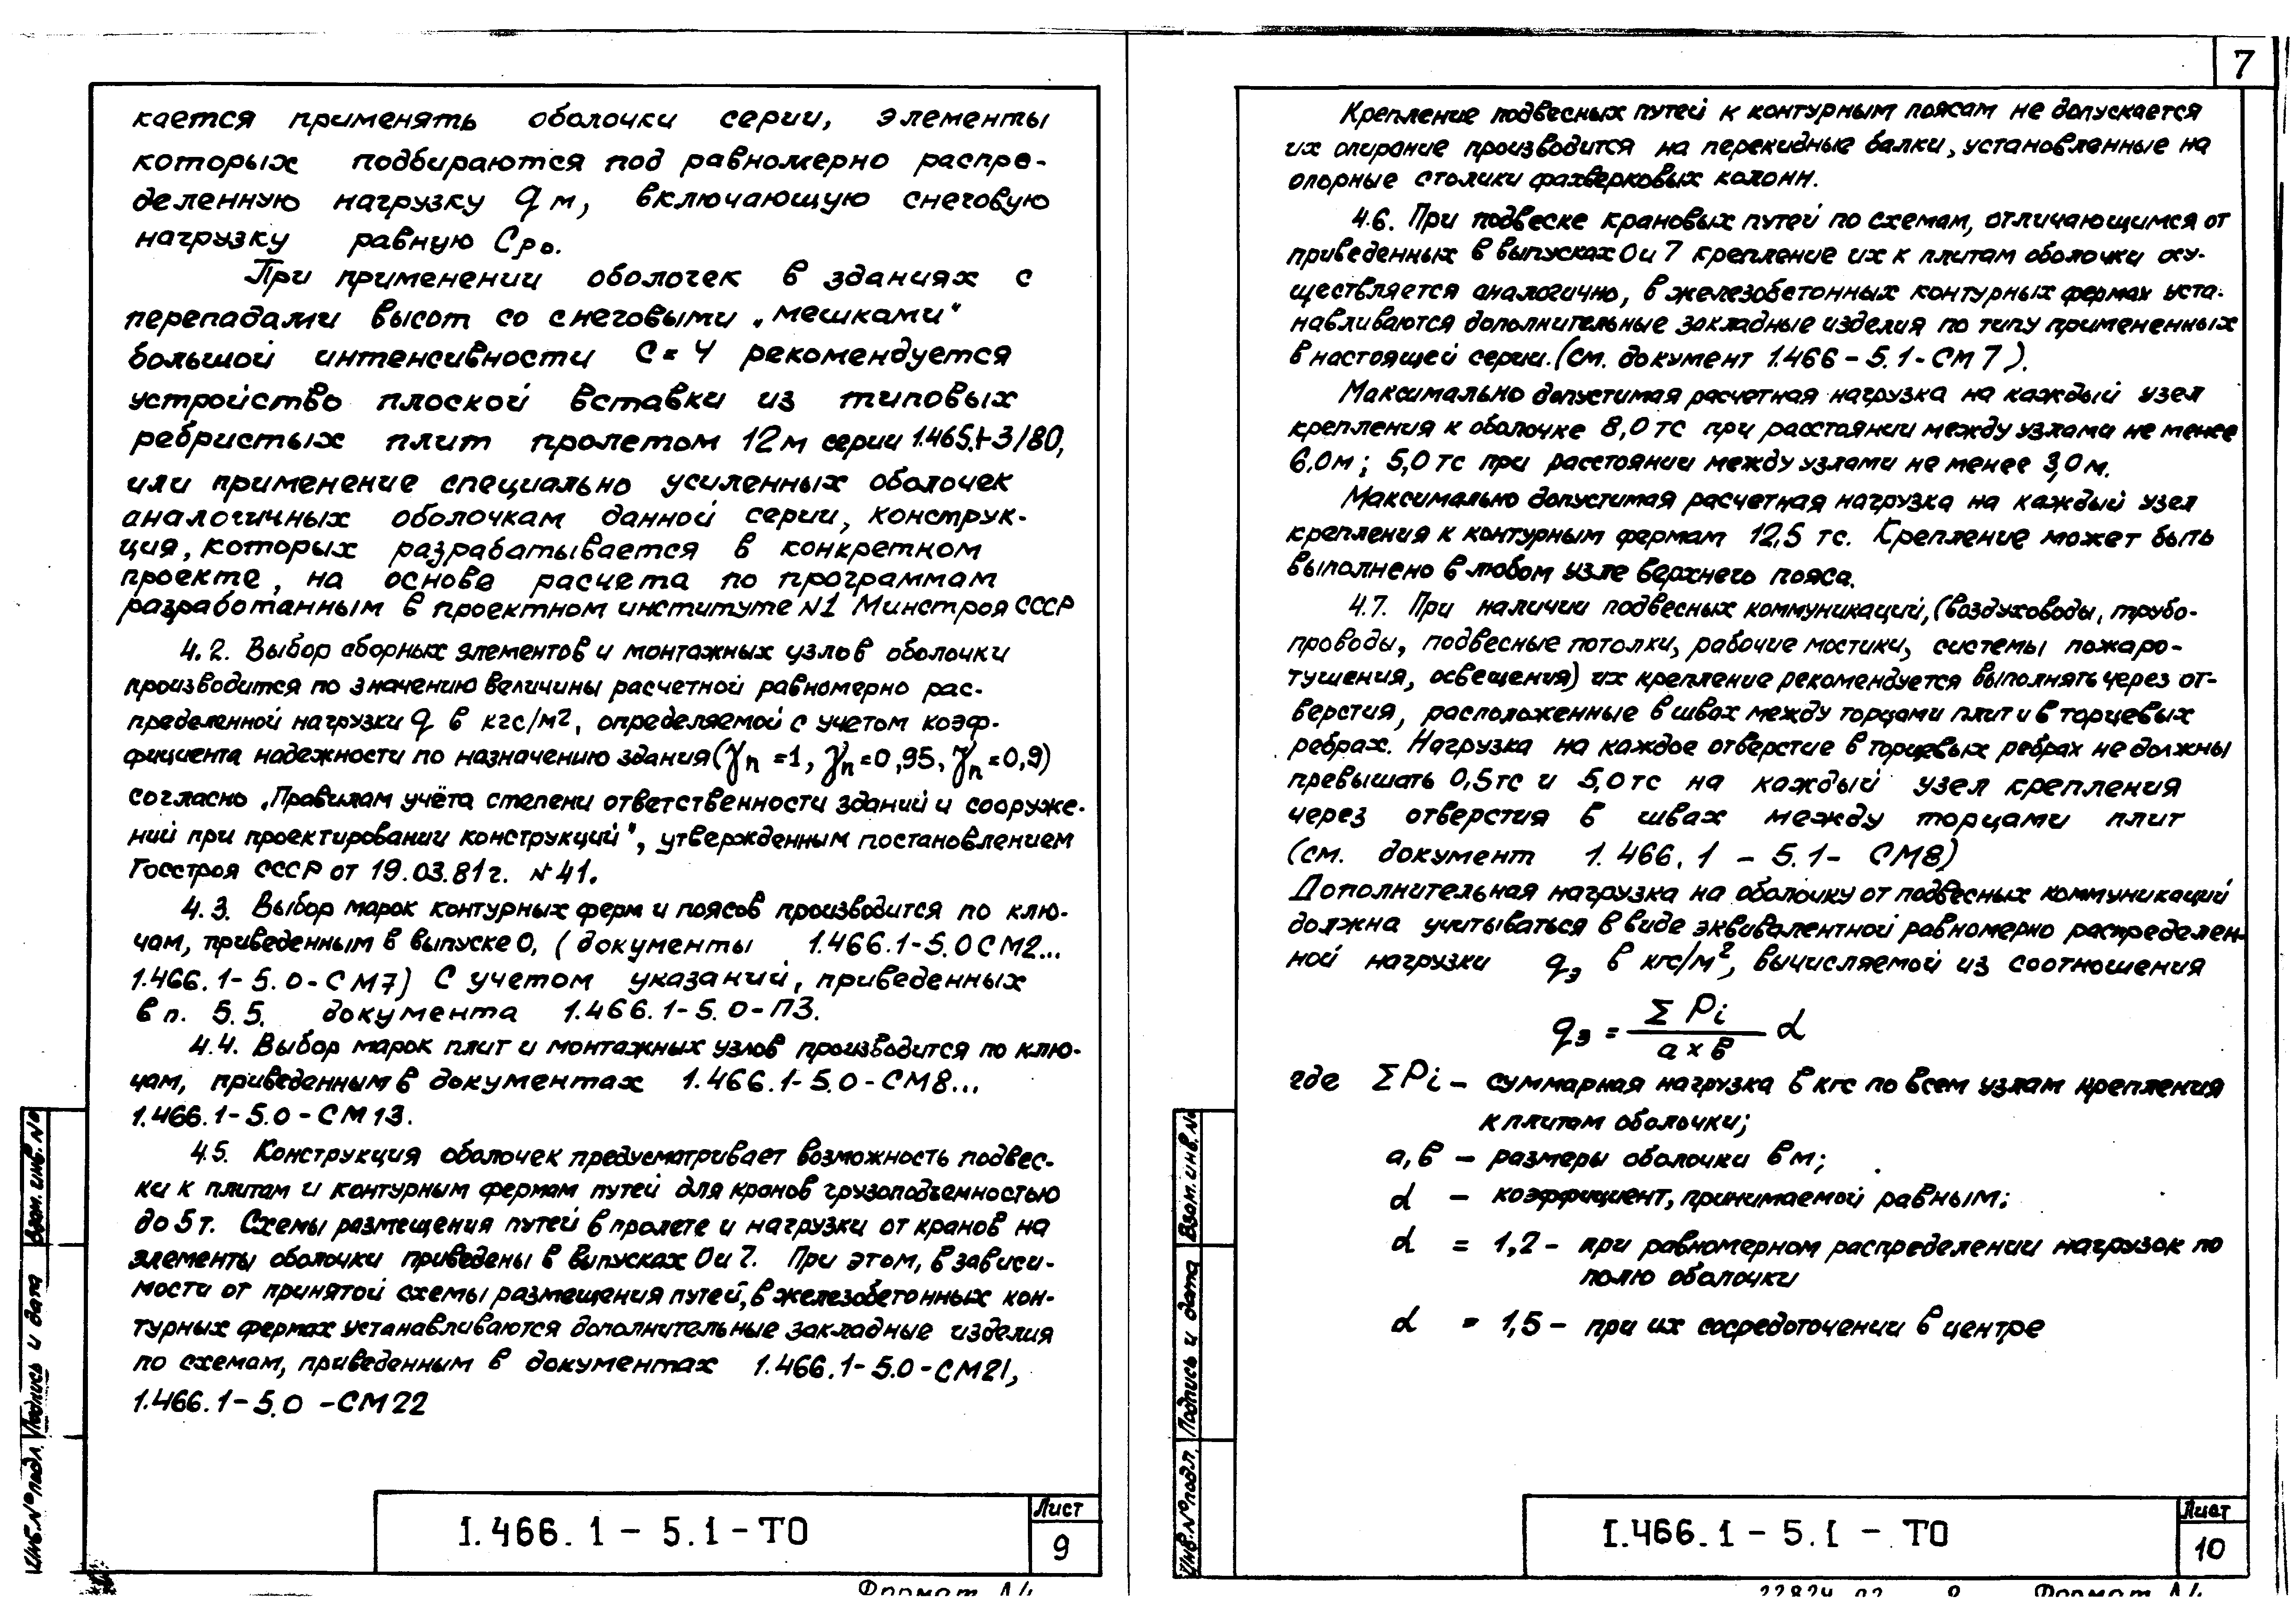 кается применять оболочки серии, элементы
которых подбираются под равномерно распре-
деленную нагрузку qм, включающую снеговую
нагрузку равную Cро.
При применении оболочек в зданиях с
перепадами высот со снеговыми „мешками"
большой интенсивности С=4 рекомендуется
устройство плоской вставки из типовых
ребристых плит пролетом 12м серии 1.465.1-3/80,
или применение специально усиленных оболочек
аналогичных оболочкам данной серии, конструк-
ция, которых разрабатывается в конкретном
проекте, на основе расчета по программам
разработанным в проектном институте №1 Минстроя СССР
4.2. Выбор сборных элементов и монтажных узлов оболочки
производится по значению величины расчетной равномерно рас-
пределенной нагрузки q в кгс/м2, определяемой с учетом коэф-
фициента надежности по назначению здания (γn=1, γn=0,95, γn=0,9)
согласно „Правилам учёта степени ответственности зданий и сооруже-
ний при проектировании конструкций", утвержденным постановлением
Госстроя СССР от 19.03.81г. №41.
4.3. Выбор марок контурных ферм и поясов производится по клю-
чам, приведенным в выпуске 0, (документы 1.466.1-5.0 СМ2...
1.466.1-5.0-СМ7) С учетом указаний, приведенных
в п. 5.5. документа 1.466.1-5.0-ПЗ.
4.4. Выбор марок плит и монтажных узлов производится по клю-
чам, приведенным в документах 1.466.1-5.0-СМ8...
1.466.1-5.0-СМ13.
4.5. Конструкция оболочек предусматривает возможность подвес-
ки к плитам и контурным фермам путей для кранов грузоподъемностью
до 5т. Схемы размещения путей в пролете и нагрузки от кранов на
элементы оболочки приведены в выпусках 0 и 7. При этом, в зависи-
мости от принятой схемы размещения путей, в железобетонных кон-
турных фермах устанавливаются дополнительные закладные изделия
по схемам, приведенным в документах 1.466.1-5.0-СМ21,
1.466.1-5.0-СМ22
Инв.№подл. Подпись и дата Взам.инв.№
1.466.1-5.1-ТО
Лист
9
Формат А4
7
Крепление подвесных путей к контурным поясам не допускается
их опирание производится на перекидные балки, установленные на
опорные столики фахверковых колонн.
4.6. При подвеске крановых путей по схемам, отличающимся от
приведенных в выпусках 0 и 7 крепление их к плитам оболочки осу-
ществляется аналогично, в железобетонных контурных фермах уста-
навливаются дополнительные закладные изделия по типу примененных
в настоящей серии.(см. документ 1.466-5.1-СМ7).
Максимально допустимая расчетная нагрузка на каждый узел
крепления к оболочке 8,0 тс при расстоянии между узлами не менее
6,0м; 5,0 тс при расстоянии между узлами не менее 3,0 м.
Максимально допустимая расчетная нагрузка на каждый узел
крепления к контурным фермам 12,5 тс. Крепление может быть
выполнено в любом узле верхнего пояса.
4.7. При наличии подвесных коммуникаций, (воздуховоды, трубо-
проводы, подвесные потолки, рабочие мостики, системы пожаро-
тушения, освещения) их крепление рекомендуется выполнять через от-
верстия, расположенные в швах между торцами плит и в торцевых
ребрах. Нагрузка на каждое отверстие в торцевых ребрах не должны
превышать 0,5тс и 5,0тс на каждый узел крепления
через отверстия в швах между торцами плит
(см. документ 1.466.1-5.1-СМ8)
Дополнительная нагрузка на оболочку от подвесных коммуникаций
должна учитываться в виде эквивалентной равномерно распределен-
ной нагрузки qэ в кгс/м², вычисляемой из соотношения
qэ = ΣPi / (a×в) α
где ΣPi - суммарная нагрузка в кгс по всем узлам крепления
к плитам оболочки;
a, в - размеры оболочки в м;
α - коэффициент, принимаемой равным:
α = 1,2 - при равномерном распределении нагрузок по
полю оболочки
α = 1,5 - при их сосредоточении в центре
Инв.№подл. Подпись и дата Взам.инв.№
1.466.1-5.1-ТО
Лист
10
Формат А4